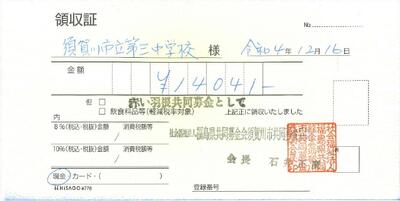 領収証
須賀川市立第三中学校 様 令和4年12月16日
金額 ¥14041-
但 赤い羽根共同募金として
飲食料品等(軽減税率対象) 上記正に領収いたしました
8%(税込・税抜)金額 消費税額等
社会福祉法人 福島県共同募金会須賀川市共同募金
10%(税込・税抜)金額 消費税額等
会長 石井
現金 カード・( )
HISAGO #778 登録番号